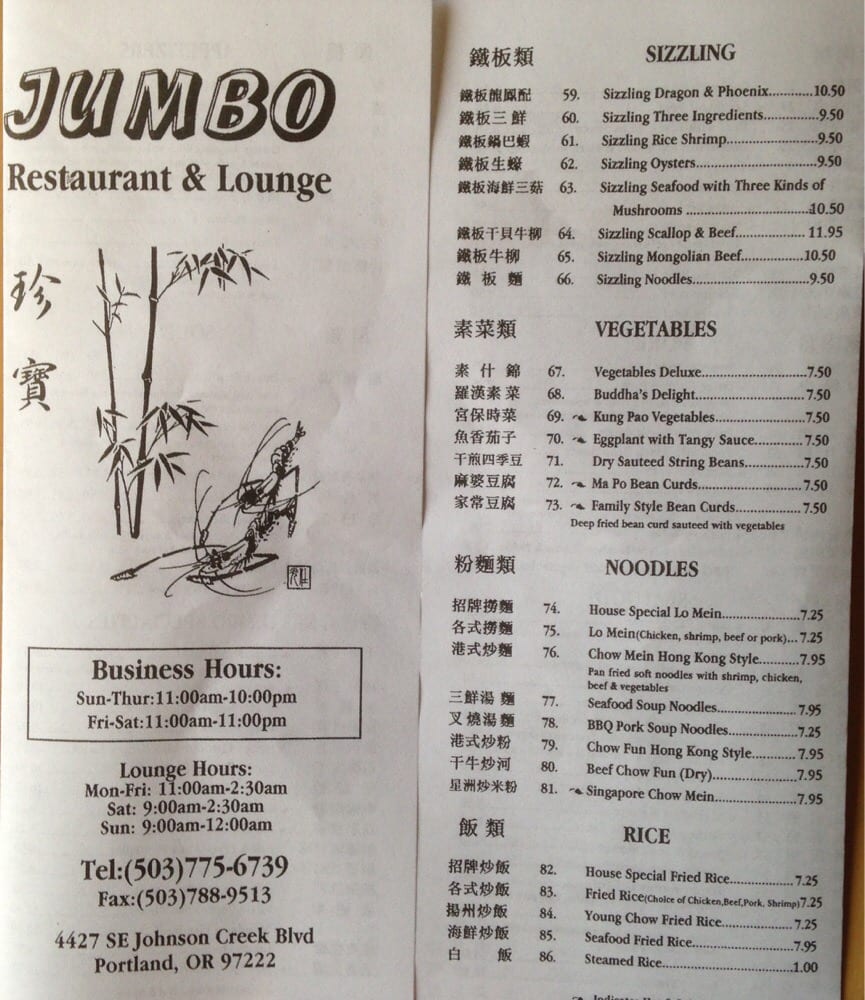 JUMBO
Restaurant & Lounge
珍
寶
Business Hours:
Sun-Thur:11:00am-10:00pm
Fri-Sat:11:00am-11:00pm
Lounge Hours:
Mon-Fri: 11:00am-2:30am
Sat: 9:00am-2:30am
Sun: 9:00am-12:00am
Tel:(503)775-6739
Fax:(503)788-9513
4427 SE Johnson Creek Blvd
Portland, OR 97222
鐵板類 SIZZLING
鐵板龍鳳配 59. Sizzling Dragon & Phoenix............10.50
鐵板三鮮 60. Sizzling Three Ingredients..............9.50
鐵板鍋巴蝦 61. Sizzling Rice Shrimp.......................9.50
鐵板生蠔 62. Sizzling Oysters...............................9.50
鐵板海鮮三菇 63. Sizzling Seafood with Three Kinds of
Mushrooms ...............................10.50
鐵板干貝牛柳 64. Sizzling Scallop & Beef................. 11.95
鐵板牛柳 65. Sizzling Mongolian Beef...............10.50
鐵板麵 66. Sizzling Noodles.............................9.50
素菜類 VEGETABLES
素什錦 67. Vegetables Deluxe..........................7.50
羅漢素菜 68. Buddha's Delight............................7.50
宮保時菜 69. Kung Pao Vegetables......................7.50
魚香茄子 70. Eggplant with Tangy Sauce.............7.50
干煎四季豆 71. Dry Sauteed String Beans...............7.50
麻婆豆腐 72. Ma Po Bean Curds..........................7.50
家常豆腐 73. Family Style Bean Curds.................7.50
Deep fried bean curd sauteed with vegetables
粉麵類 NOODLES
招牌撈麵 74. House Special Lo Mein...................7.25
各式撈麵 75. Lo Mein(Chicken, shrimp, beef or pork)...7.25
港式炒麵 76. Chow Mein Hong Kong Style...........7.95
Pan fried soft noodles with shrimp, chicken,
beef & vegetables
三鮮湯麵 77. Seafood Soup Noodles....................7.95
叉燒湯麵 78. BBQ Pork Soup Noodles.................7.25
港式炒粉 79. Chow Fun Hong Kong Style............7.95
干牛炒河 80. Beef Chow Fun (Dry).....................7.95
星洲炒米粉 81. Singapore Chow Mein....................7.95
飯類 RICE
招牌炒飯 82. House Special Fried Rice................7.25
各式炒飯 83. Fried Rice(Choice of Chicken,Beef,Pork, Shrimp)7.25
揚州炒飯 84. Young Chow Fried Rice..................7.25
海鮮炒飯 85. Seafood Fried Rice.........................7.95
白飯 86. Steamed Rice.................................1.00